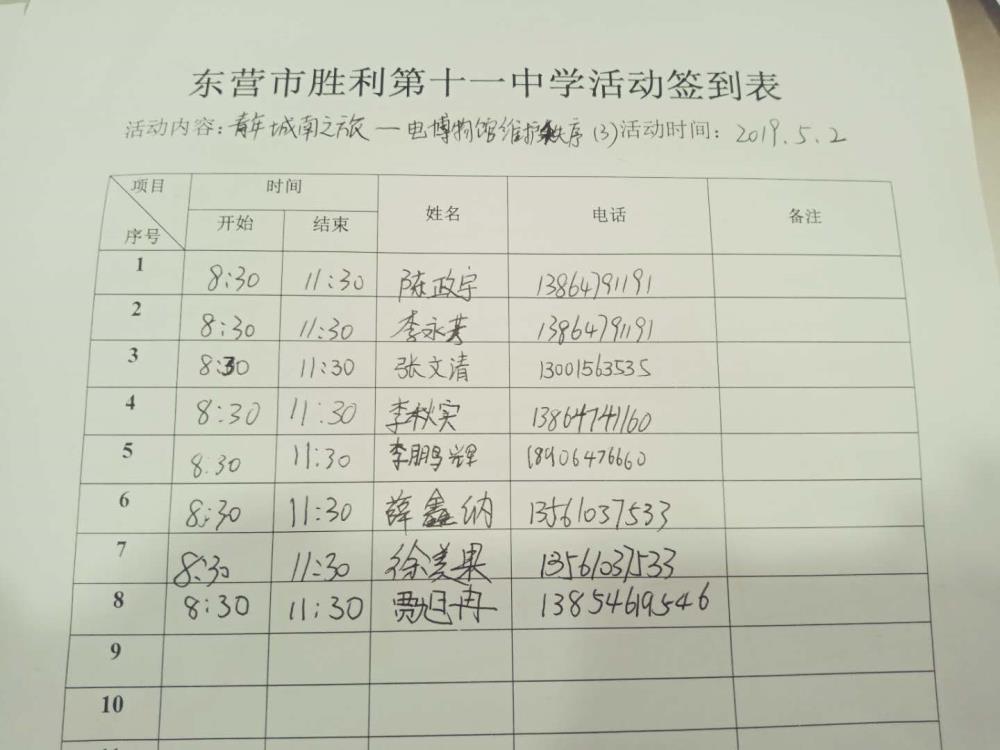 东营市胜利第十一中学活动签到表
活动内容:青年城南之旅—电博物馆维护秩序(3)活动时间:2019.5.2
项目 时间 姓名 电话 备注
序号 开始 结束
1 8:30 11:30 陈政宇 13864791191
2 8:30 11:30 李永芳 13864791191
3 8:30 11:30 张文清 13001563535
4 8:30 11:30 李秋实 13864741160
5 8:30 11:30 李鹏辉 18906476660
6 8:30 11:30 薛鑫纳 13561037533
7 8:30 11:30 徐美果 13561037533
8 8:30 11:30 贾旭冉 13854619546
9
10